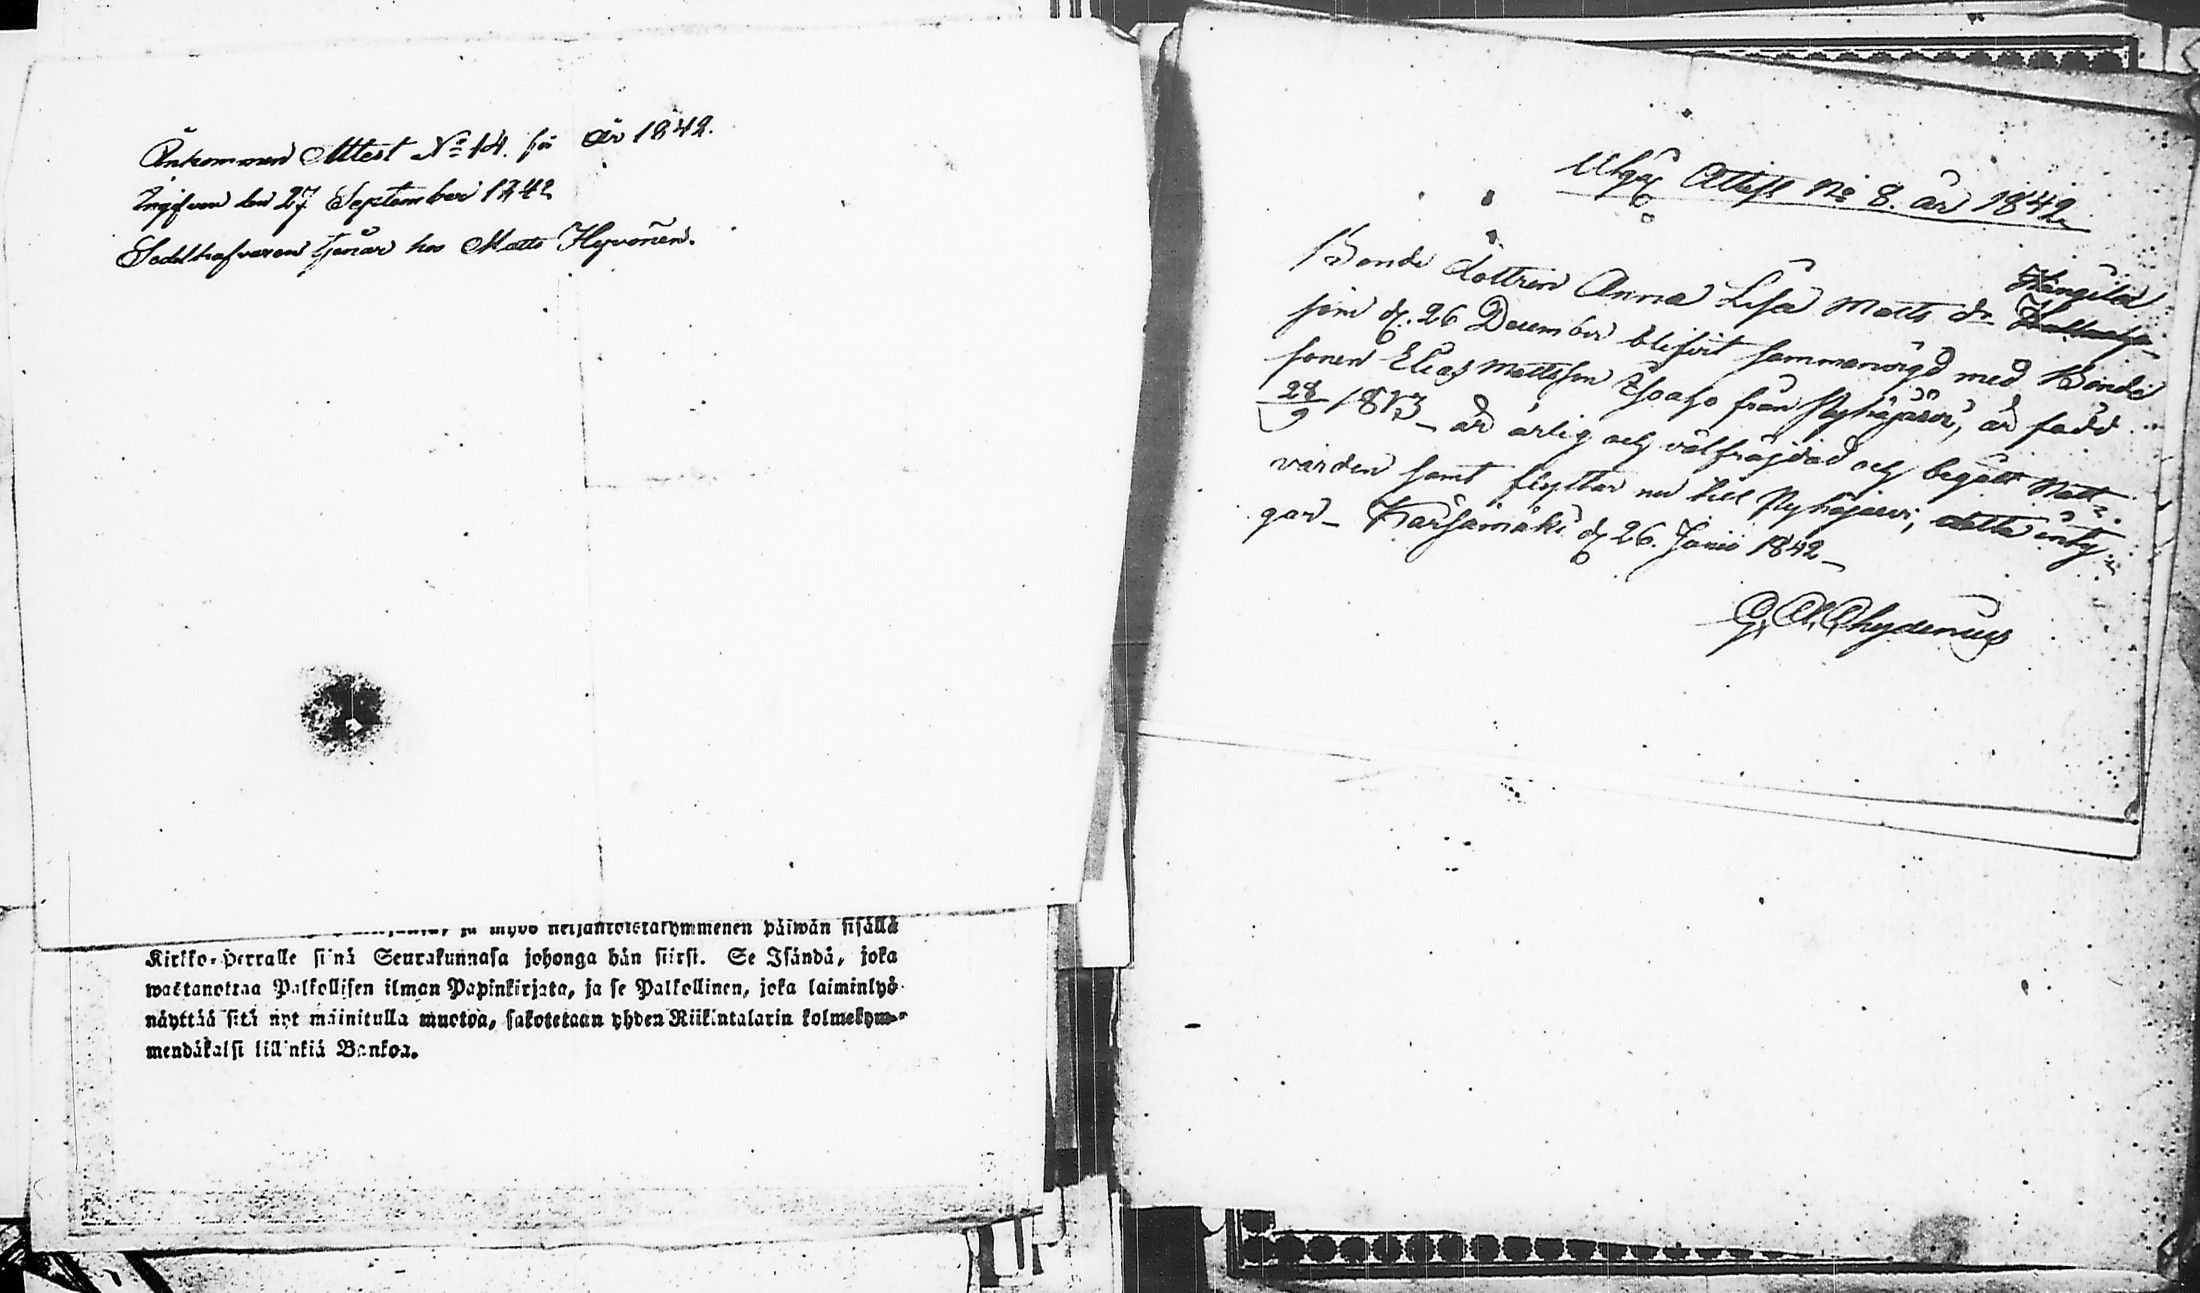 Ankommen Attest No 14. för år 1842.
Ingifven den 27 September 1842
Sedelhafvaren tjenar hos Matts Hyvönen.
ja myös neljäntoistakymmenen päiwän sisällä
Kirkko-herralle siinä Seurakunnasa johonga hän siirsi. Se Isändä, joka
wastanottaa Palkollisen ilman Papinkirjata, ja se Palkollinen, joka laiminlyö
näyttää sitä nyt mainitulla muotoa, sakotetaan yhden Riikintalarin kolmekym-
mendäkaksi killinkiä Bankoa.
Utgår Attest No 8. år 1842
Bonde dottren Anna Lisa Matts dr Kangila
som d. 26 December blifvit sammanvigd med Bonde
sonen Elias Mattsson Ahoaho från Pyhäjärvi, är född
28/9 1813 - är ärlig och välfräjdad och begått Natt-
varden samt flyttar nu till Pyhäjärvi, detta inty-
gar - Kärsämäki d 26. Junii 1842 -
G. A. Chydenius